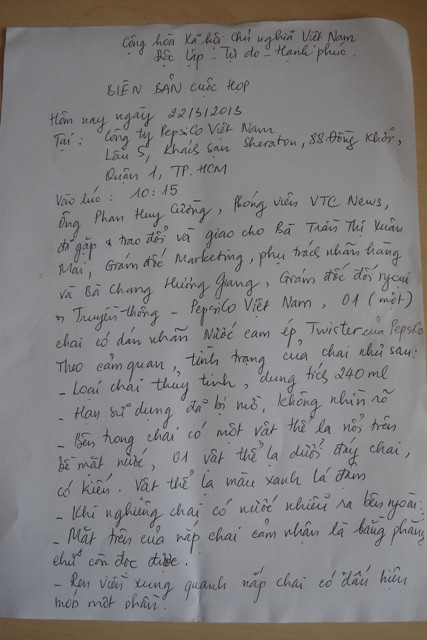 Cộng hòa Xã hội Chủ nghĩa Việt Nam
Độc lập - Tự do - Hạnh phúc.
BIÊN BẢN CUỘC HỌP
Hôm nay ngày 22/5/2013
Tại: Công ty PepsiCo Việt Nam
Lầu 5, khách sạn Sheraton, 88 Đồng Khởi,
Quận 1, TP. HCM
Vào lúc: 10:15
Ông Phan Huy Cường, Phóng viên VTC News,
đã gặp & trao đổi và giao cho Bà Trần Thị Xuân
Mai, Giám đốc Marketing, phụ trách nhãn hàng
và Bà Chung Hương Giang, Giám đốc đối ngoại
& Truyền thông - PepsiCo Việt Nam, 01 (một)
chai có dán nhãn Nước cam ép Twister của PepsiCo
Theo cảm quan, tình trạng của chai như sau:
- Loại chai thủy tinh, dung tích 240 ml
- Hạn sử dụng đã bị mờ, không nhìn rõ
- Bên trong chai có một vật thể lạ nổi trên
bề mặt nước, 01 vật thể lạ dưới đáy chai,
có kiến. Vật thể lạ màu xanh lá đậm
- Khi nghiêng chai có nước nhiễu ra bên ngoài.
- Mặt trên của nắp chai cảm nhận là bằng phẳng
chữ còn đọc được.
- Ren viền xung quanh nắp chai có dấu hiệu
móp một phần.